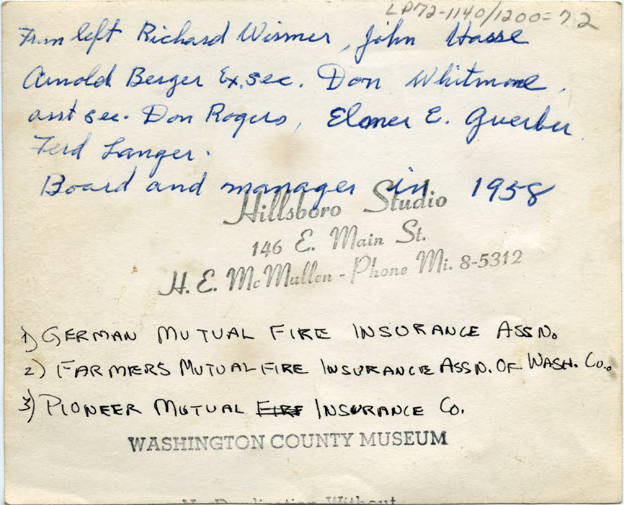 LP72-1140/1200=7.2
From left Richard Wismer, John Hasse
Arnold Berger Ex. sec. Don Whitmore,
asst sec. Don Rogers, Elmer E. Guerber
Ferd Langer.
Board and manager in 1958
Hillsboro Studio
146 E. Main St.
H. E. McMullen - Phone Mi. 8-5312
1) GERMAN MUTUAL FIRE INSURANCE ASSN.
2) FARMERS MUTUAL FIRE INSURANCE ASSN. OF WASH. CO.
3) PIONEER MUTUAL FIRE INSURANCE CO.
WASHINGTON COUNTY MUSEUM
No Duplication Without